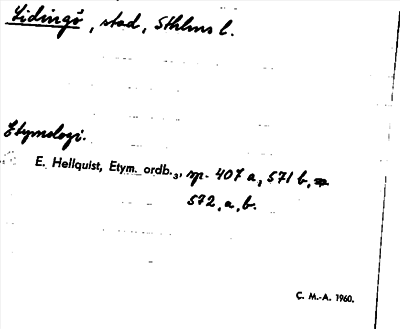 Lidingö, stad, Sthlms l.
Etymologi.
E. Hellquist, Etym. ordb.₃, sp. 407 a, 571 b,
572, a, b.
C. M.-A. 1960.